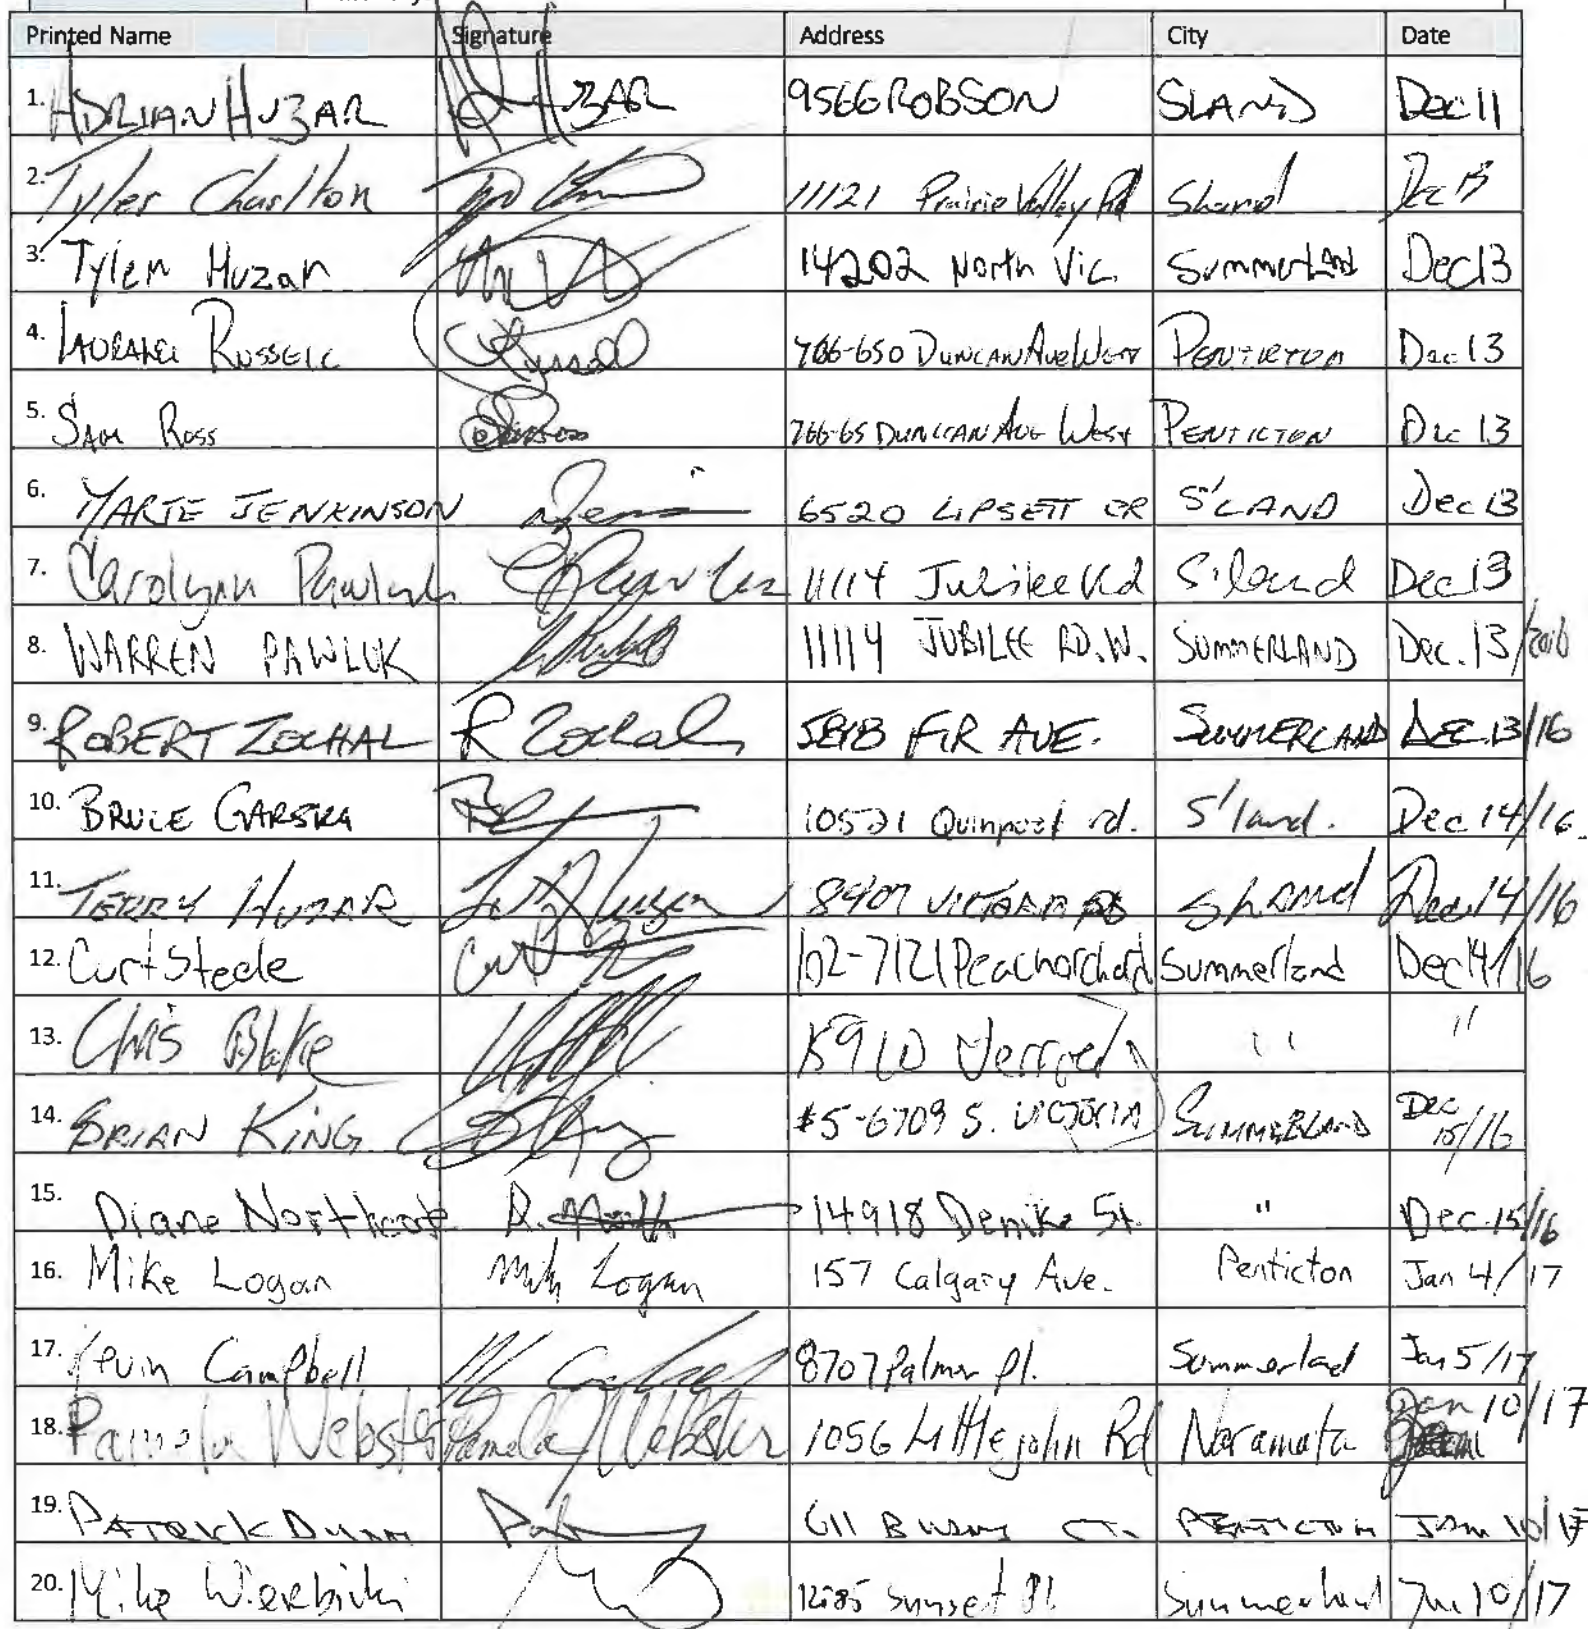 Printed Name Signature Address City Date
1. ADRIAN HUZAR HUZAR 9566 ROBSON SLAND Dec 11
2. Tyler Charlton 11121 Prairie Valley Rd Sland Dec 13
3. Tyler Huzar 14202 North Vic. Summerland Dec 13
4. RUSSELL Russell 766-650 DUNCAN Ave West PENTICTON Dec 13
5. SAM ROSS 766-65 DUNCCAN AVE WEST PENTICTON Dec 13
6. MARIE JENKINSON 6520 LIPSETT CR S'LAND Dec 13
7. Carolynn Pawluk 11114 Jubilee Rd S'land Dec 13
8. WARREN PAWLUK 11114 JUBILEE RD. W. SUMMERLAND Dec. 13/2016
9. ROBERT ZOCHAL R Zochal FIR AVE. SUMMERLAND DEC. 13/16
10. BRUCE GARSKA 10521 Quinpool rd. S'land. Dec 14/16
11. TERRY HUZAR 8407 VICTORIA Sland Dec 14/16
12. Curt Steele Curt 102-7121 Peachorchard Summerland Dec 14/16
13. Chris Blake " "
14. BRIAN KING #5-6709 S. VICTORIA SUMMERLAND Dec 15/16
15. Diane Northcote D. North 14918 Denike St. " Dec. 15/16
16. Mike Logan Mike Logan 157 Calgary Ave. Penticton Jan 4/17
17. Kevin Campbell 8707 Palmer pl. Summerland Jan 5/17
18. Pamela Webster Pamela Webster 1056 Littlejohn Rd Naramata Jan 10/17
19. PATRICK Dunn 611 PENTICTON JAN 10/17
20. Mike Wierbicki Sunset Pl Summerland Jan 10/17